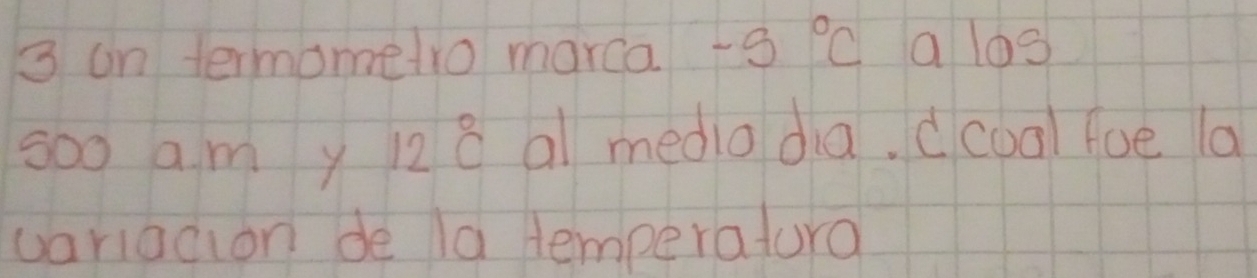 3 un termometro marca -5 °C a las
500 a.m y 12 °C al medio dia. ¿cual fue la
variacion de la temperatura